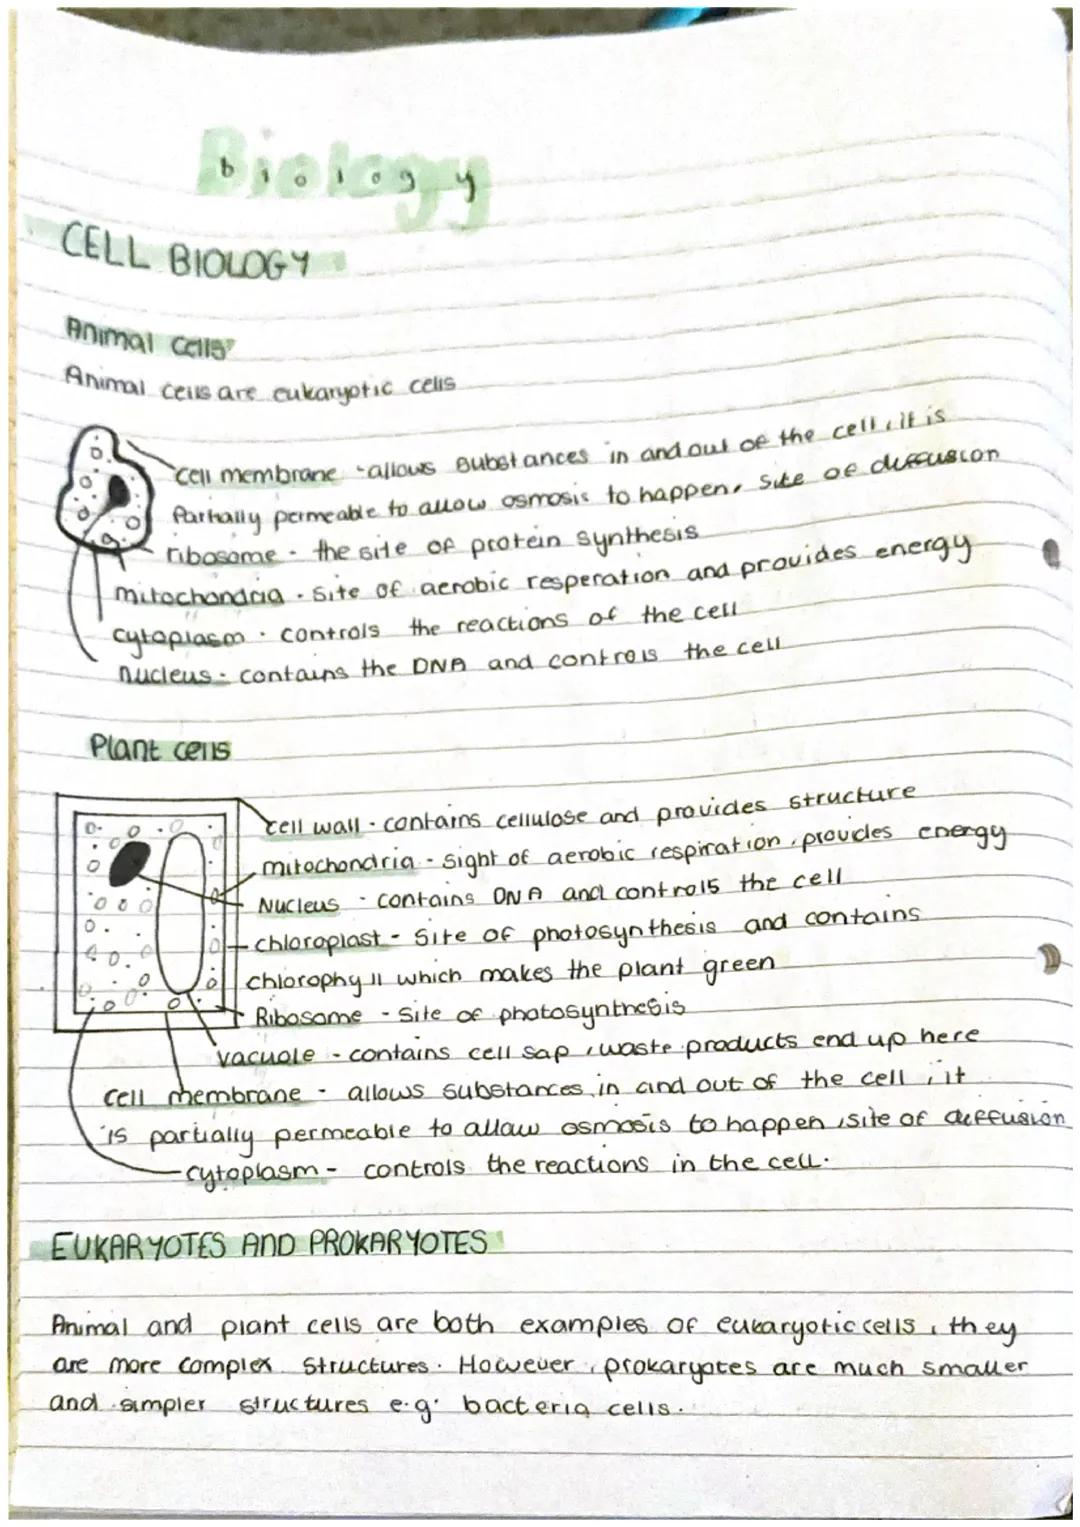 Biology
biology
CELL BIOLOGY
Animal cells
Animal cells are eukaryotic cells
cell membrane - allows substances in and out of the cell, it is
Partially permeable to allow osmosis to happen, site of duffusion
ribosome - the site of protein synthesis
mitochondria - site of aerobic resperation and provides energy
cytoplasm - controls the reactions of the cell
nucleus - contains the DNA and controls the cell
Plant cells
cell wall - contains cellulose and provides structure
mitochondria - sight of aerobic respiration, provides energy
Nucleus - contains DNA and controls the cell
chloroplast - site of photosynthesis and contains
chlorophyll which makes the plant green
Ribosome - site of photosynthesis
vacuole - contains cell sap, waste products end up here
cell membrane - allows substances in and out of the cell, it
is partially permeable to allow osmosis to happen, site of deffusion
cytoplasm - controls the reactions in the cell.
EUKARYOTES AND PROKARYOTES
Animal and plant cells are both examples of eukaryotic cells, they
are more complex structures. However, prokaryotes are much smaller
and simpler structures e.g. bacteria cells.